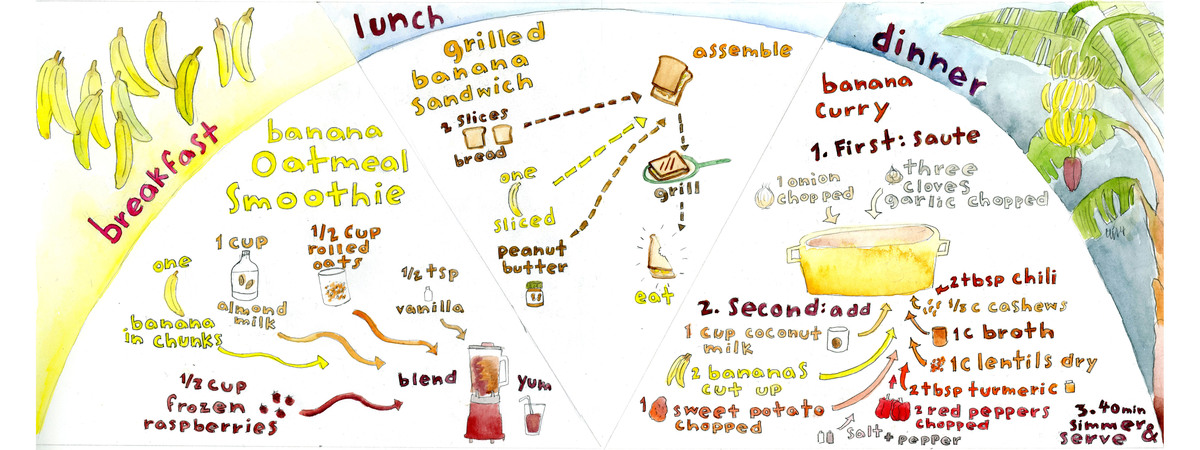 breakfast
banana
Oatmeal
Smoothie
one
banana
in chunks
1 cup
almond
milk
1/2 cup
rolled
oats
1/2 tsp
vanilla
1/2 cup
frozen
raspberries
blend
yum
lunch
grilled
banana
Sandwich
2 slices
bread
one
sliced
peanut
butter
assemble
grill
eat
dinner
banana
Curry
1. First: saute
1 onion
chopped
three
cloves
garlic chopped
2. Second: add
1 cup coconut
milk
2 bananas
cut up
1 sweet potato
chopped
salt + pepper
2 tbsp chili
1/3 c cashews
1c broth
1c lentils dry
2 tbsp turmeric
2 red peppers
chopped
3. 40 min
simmer &
serve